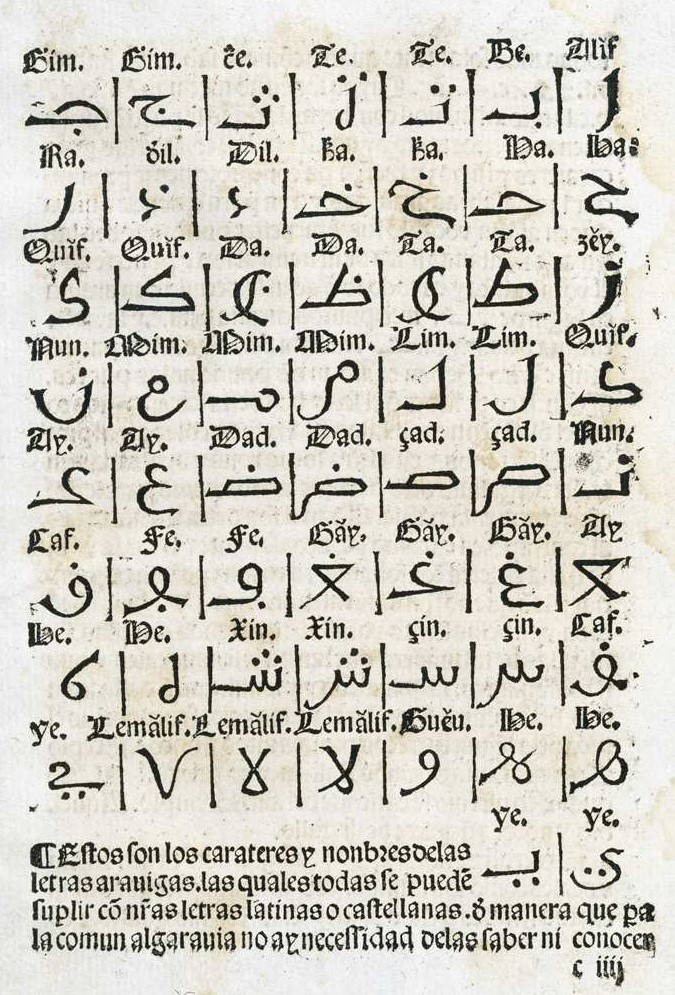 Gim. Gim. c̃e. Te. Te. Be. Alif
ا ب ت ت ث ج ج
Ra. ḋil. Dil. ƙa. ƙa. Ha. Ha.
ح ح خ خ د ذ ر
Quĭf. Quĭf. Da. Da. Ta. Ta. zĕy.
ز ط ط ظ ظ ك ك
Nun. Mim. Mim. Mim. Lim. Lim. Quĭf.
ك ل ل م م م ن
Ay. Ay. Dad. Dad. çad. çad. Nun.
ن ص ص ض ض ع ع
Caf. Fe. Fe. Găy. Găy. Găy. Ay
ع غ غ غ ڢ ڢ ڧ
He. He. Xin. Xin. çin. çin. Caf.
ڧ س س ش ش ه ه
ye. Lemălif. Lemălif. Lemălif. Guĕu. He. He.
ه ه و لا لا لا ي
ye. ye.
ي ي
¶Estos son los carateres ⁊ nonbres delas
letras arauigas. las quales todas se puedẽ
suplir cõ nr̃as letras latinas o castellanas. ḋ manera que ꝑa
la comun algarauia no ay necessidad delas saber ni conocer
c iiij